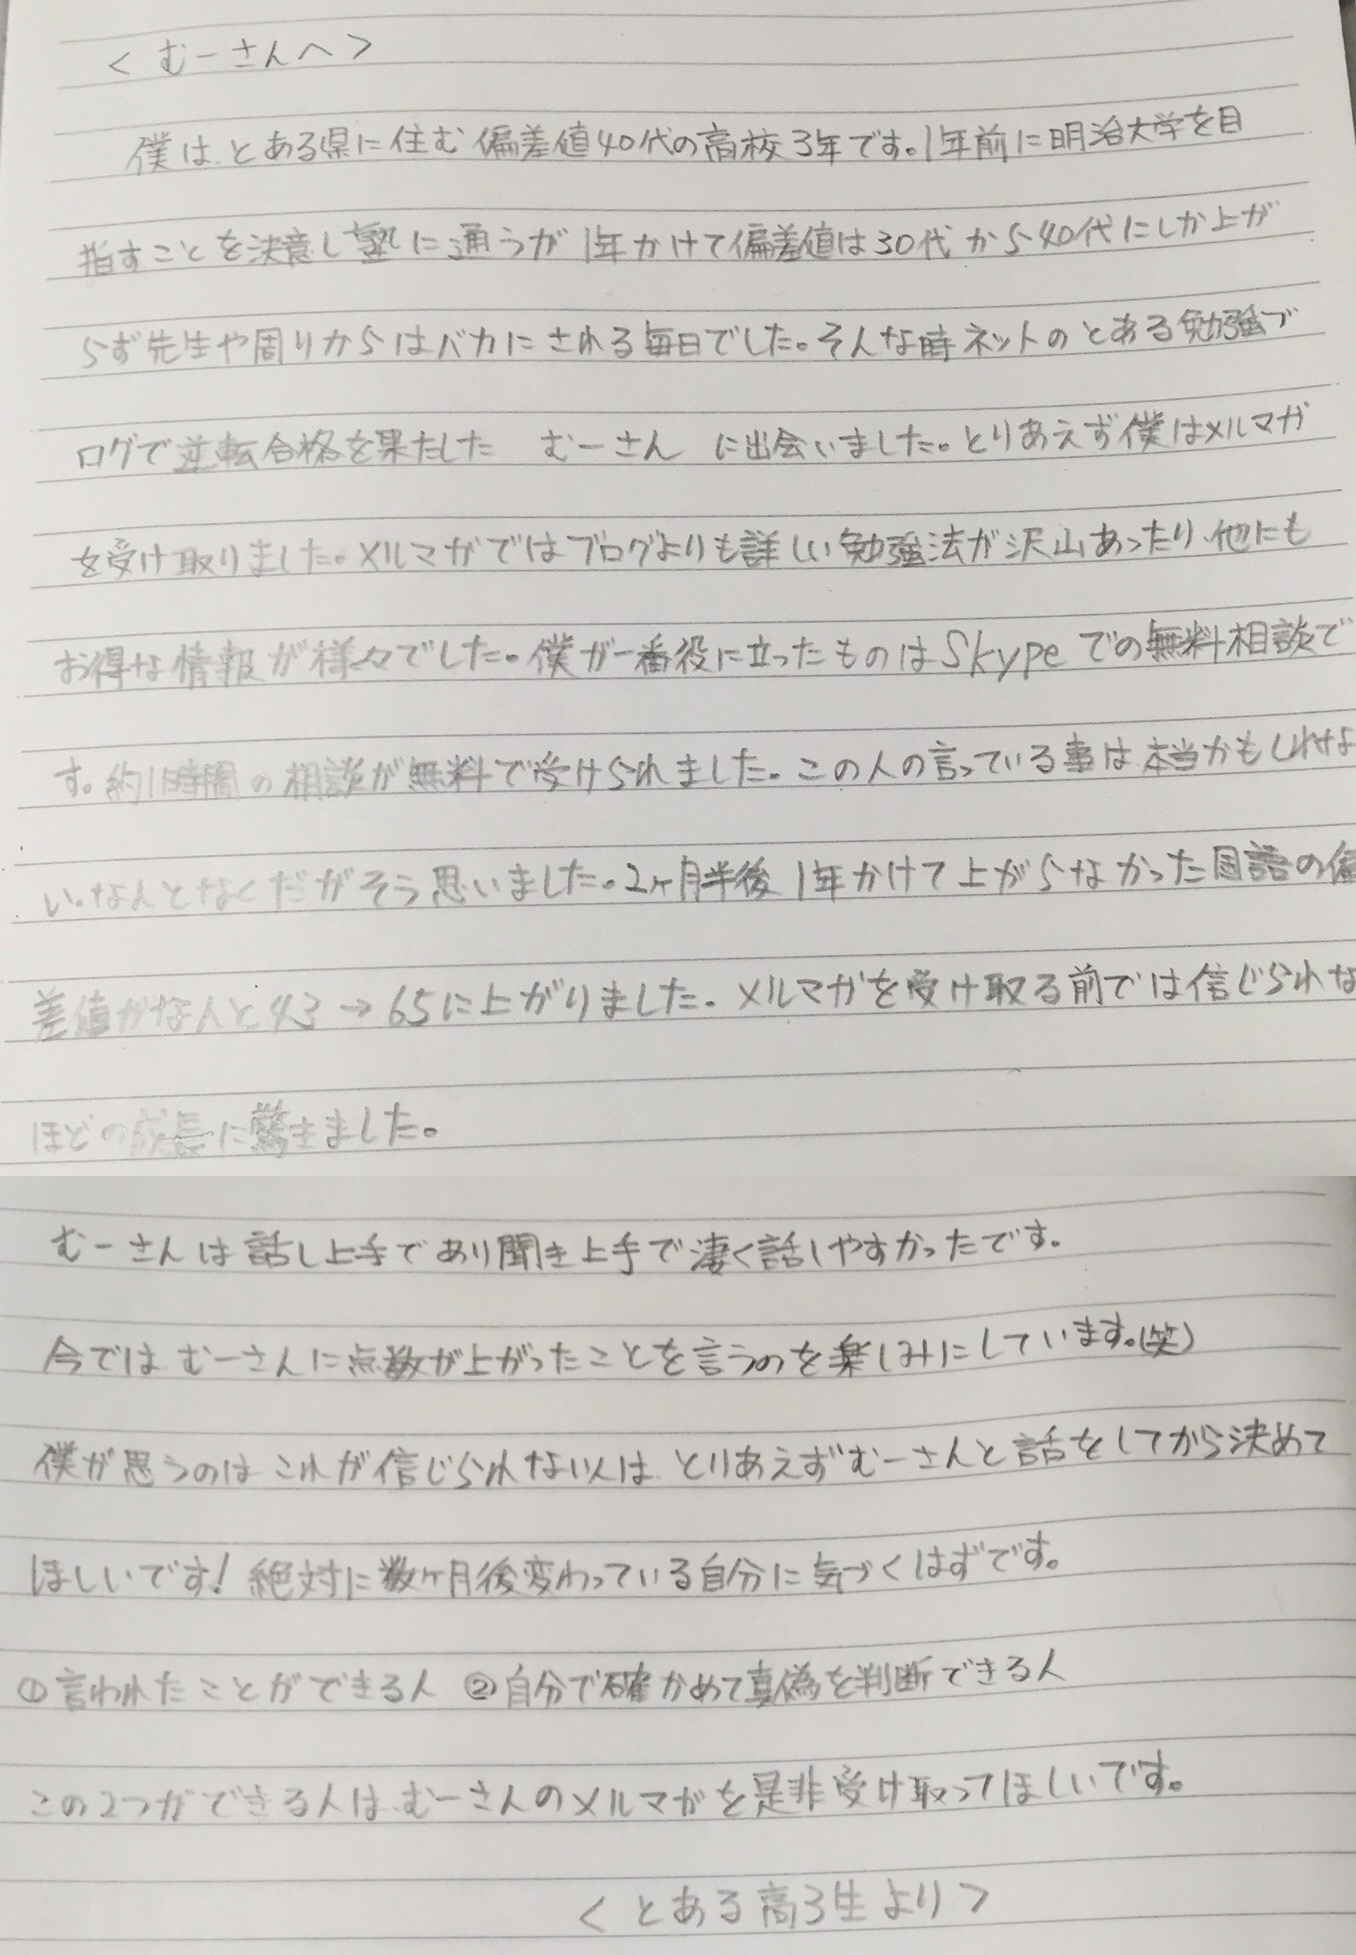 ＜むーさんへ＞
僕は、とある県に住む偏差値40代の高校3年です。1年前に明治大学を目
指すことを決意し塾に通うが1年かけて偏差値は30代から40代にしか上が
らず先生や周りからはバカにされる毎日でした。そんな時ネットのとある勉強ブ
ログで逆転合格を果たした　むーさん　に出会いました。とりあえず僕はメルマガ
を受け取りました。メルマガではブログよりも詳しい勉強法が沢山あったり、他にも
お得な情報が様々でした。僕が一番役に立ったものはSkypeでの無料相談で
す。約1時間の相談が無料で受けられました。この人の言っている事は本当かもしれな
い。なんとなくだがそう思いました。2ヶ月半後1年かけて上がらなかった国語の偏
差値がなんと43→65に上がりました。メルマガを受け取る前では信じられな
ほどの成長に驚きました。
むーさんは話し上手であり聞き上手で凄く話しやすかったです。
今ではむーさんに点数が上がったことを言うのを楽しみにしています。(笑)
僕が思うのはこれが信じられない人は、とりあえずむーさんと話をしてから決めて
ほしいです！絶対に数ヶ月後変わっている自分に気づくはずです。
①言われたことができる人 ②自分で確かめて真偽を判断できる人
この2つができる人は、むーさんのメルマガを是非受け取ってほしいです。
＜とある高3生より＞